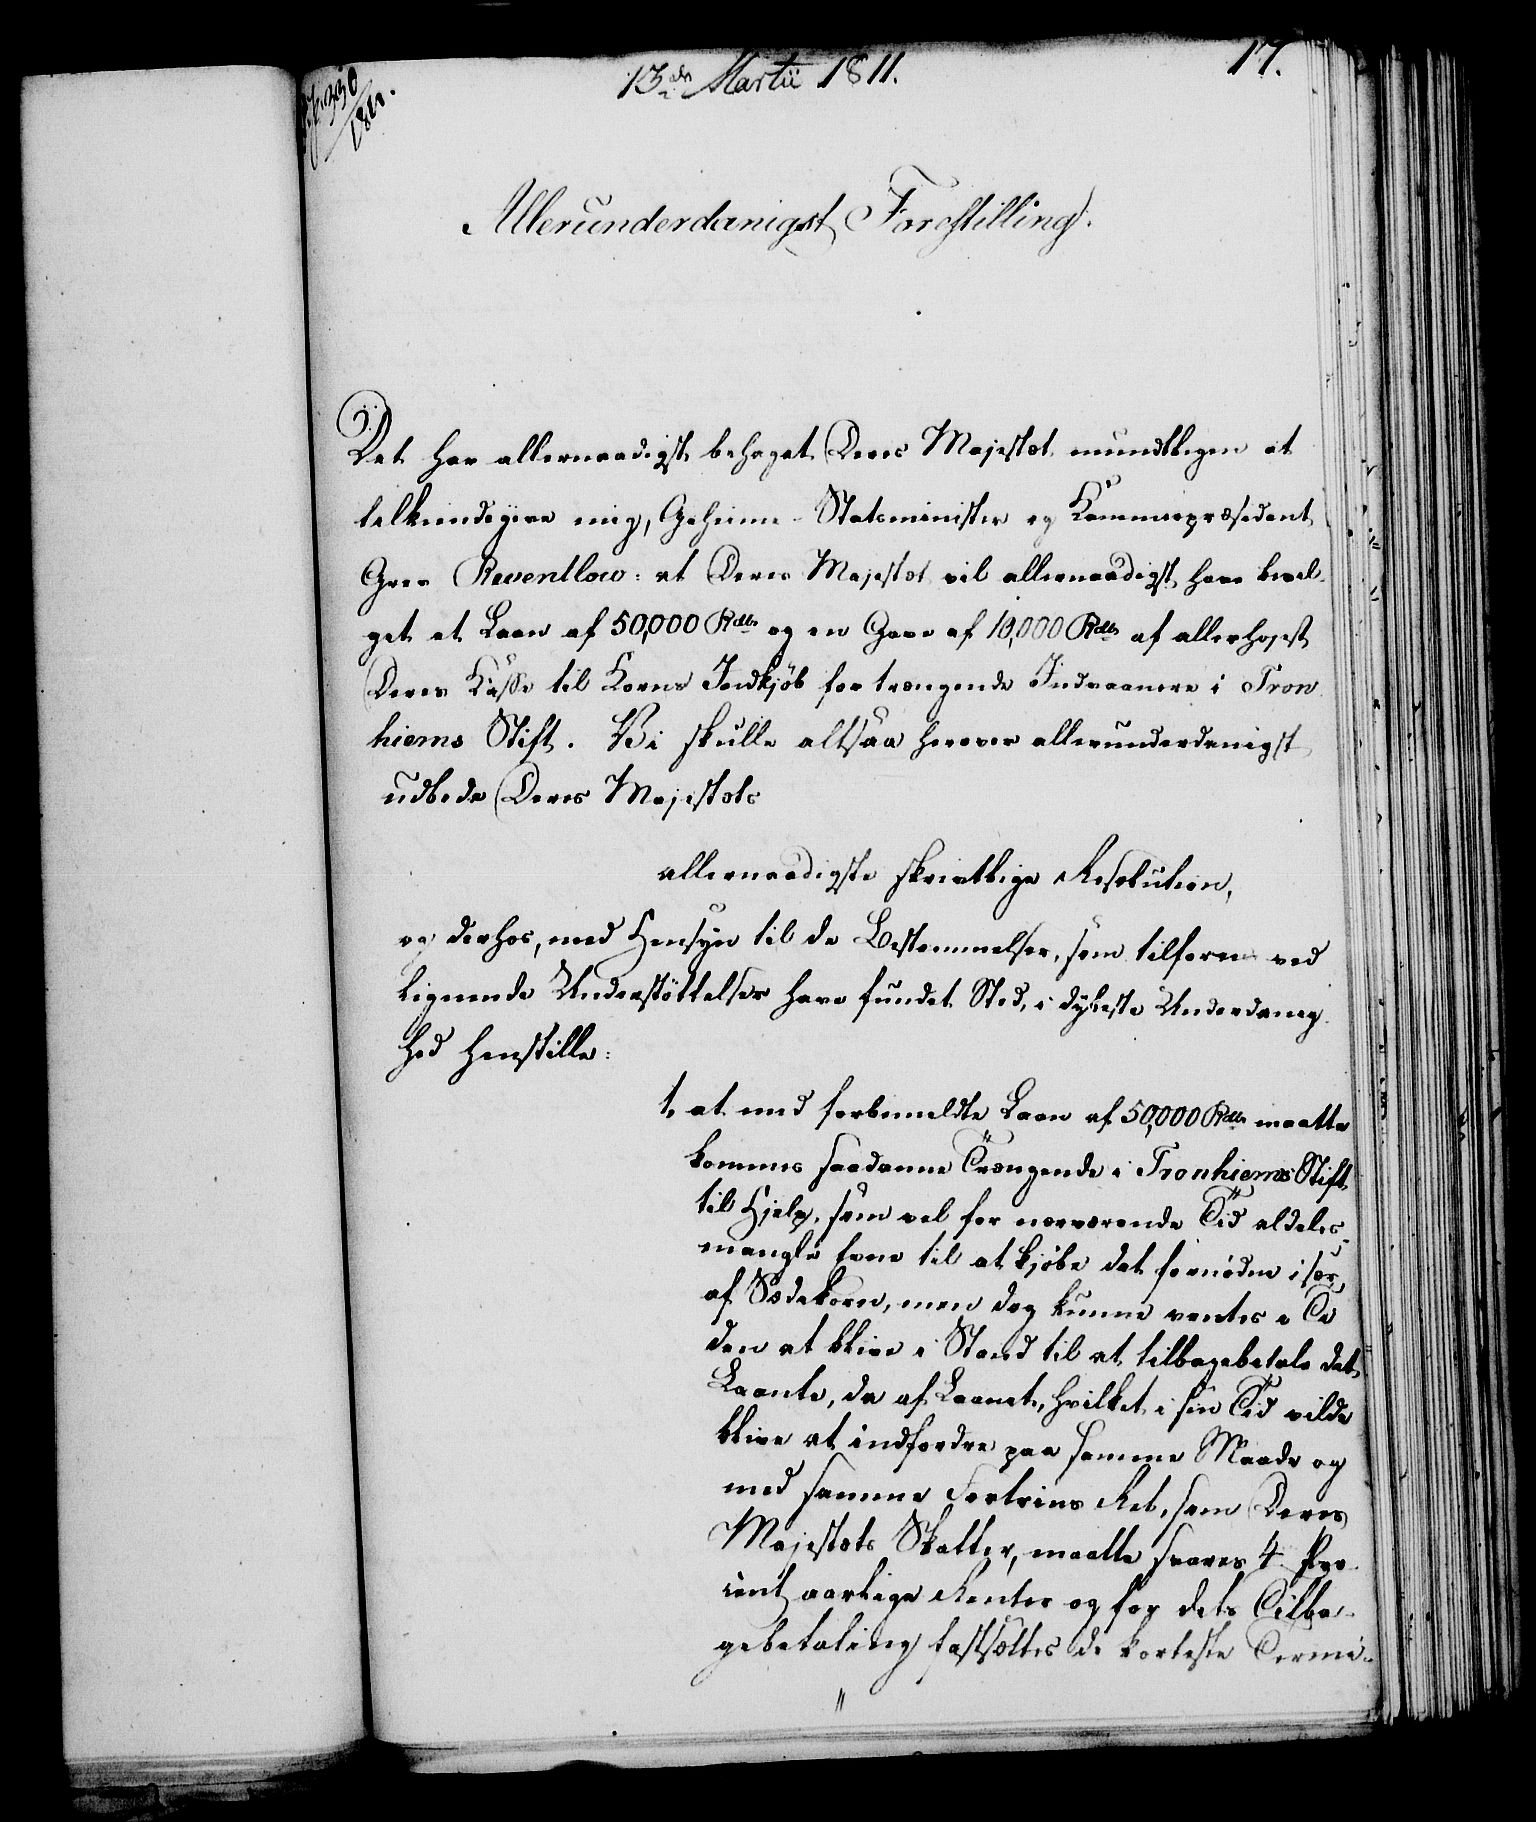 13de Martii 1811.
17.
330/1811.
Allerunderdanigst Forestilling.
Det har allernaadigst behaget Deres Majestæt mundtligen at
tilkiendegive mig, Geheime-Statsminister og Kammerpræsident
Grev Reventlow: at Deres Majestæt vil allernaadigst have bevil-
get et Laan af 50,000 Rdlr og en Gave af 10,000 Rdlr af allerhøjst
Deres Kasse til Korns Indkjøb for trængende Indvaanere i Tron-
hiems Stift. Vi skulle altsaa herover allerunderdanigst
udbede Deres Majestæts
allernaadigste skrivtlige Resolution,
og derhos, med Hensyn til de Bestemmelser, som tilforn ved
lignende Understøttelser have fundet Sted, i dybeste Underdanig-
hed henstille:
1, at med forbemeldte Laan af 50,000 Rdlr maatte
kommes saadanne Trængende i Tronhiems Stift
til Hjelp, som vel for nærværende Tid aldeles
mangle Evne til at kjøbe det fornødne, især
af Sædekorn, men dog kunne ventes i Ti-
den at blive i Stand til at tilbagebetale det
Laante, da af Laanet, hvilket i sin Tid vilde
blive at indfordre paa samme Maade og
med samme Fortrins Ret, som Deres
Majestæts Skatter, maatte svares 4 Pro-
cent aarlige Renter og for dets Tilba-
gebetaling fastsættes de korteste Termi-